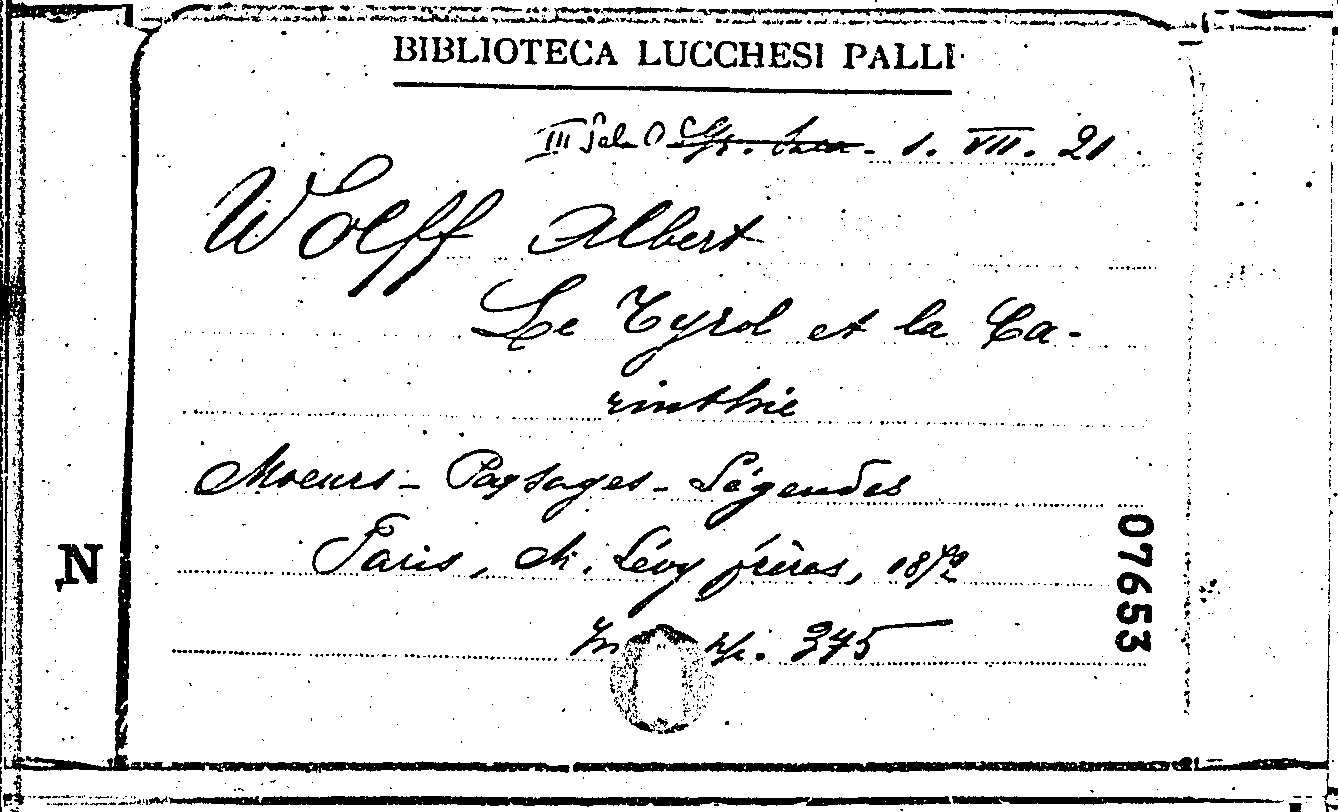 BIBLIOTECA LUCCHESI PALLI
III Sala 1. VII. 21
Wolff Albert
Le Tyrol et la Ca-
rinthie
Moeurs - Paysages - Légendes
Paris, M. Lévy frères, 1872
In p. 345
N
07653